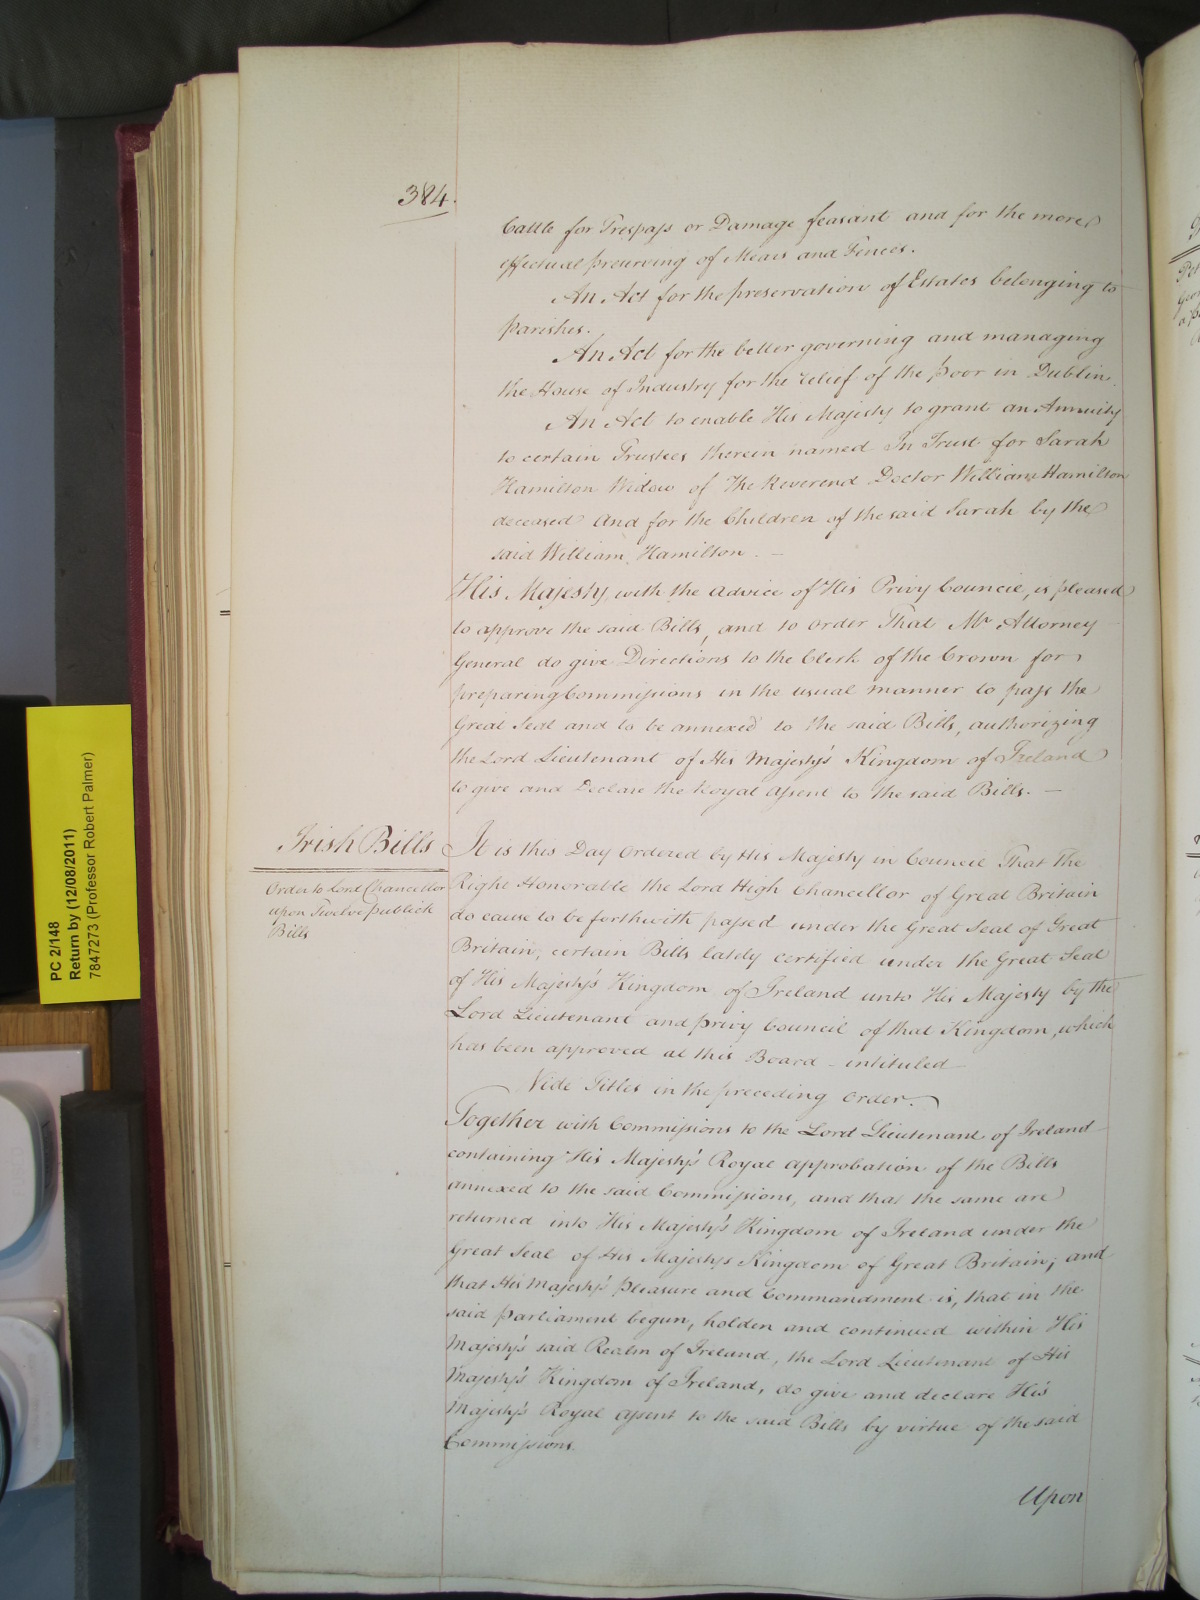 384.
Cattle for Trespass or Damage feasant and for the more
effectual preserving of Mears and Fences.
An Act for the preservation of Estates belonging to
parishes.
An Act for the better governing and managing
the House of Industry for the relief of the poor in Dublin.
An Act to enable His Majesty to grant an Annuity
to certain Trustees therein named In Trust for Sarah
Hamilton Widow of The Reverend Doctor William Hamilton
deceased And for the Children of the said Sarah by the
said William Hamilton. —
His Majesty, with the advice of His Privy Council, is pleased
to approve the said Bills, and to order That Mr Attorney
General do give Directions to the Clerk of the Crown for
preparing Commissions in the usual manner to pass the
Great Seal and to be annexed to the said Bills, authorizing
the Lord Lieutenant of His Majesty's Kingdom of Ireland
to give and Declare the Royal Assent to the said Bills. —
Irish Bills
Order to Lord Chancellor
upon Twelve publick
Bills
It is this Day Ordered by His Majesty in Council That the
Right Honorable the Lord High Chancellor of Great Britain
do cause to be forthwith passed under the Great Seal of Great
Britain, certain Bills lately certified under the Great Seal
of His Majesty's Kingdom of Ireland unto His Majesty by the
Lord Lieutenant and privy Council of that Kingdom, which
has been approved at this Board - intituled
Vide Titles in the preceding Order.
Together with Commissions to the Lord Lieutenant of Ireland
containing His Majesty's Royal approbation of the Bills
annexed to the said Commissions, and that the same are
returned into His Majesty's Kingdom of Ireland under the
Great Seal of His Majesty's Kingdom of Great Britain; and
that His Majesty's pleasure and Commandment is, that in the
said parliament begun, holden and continued within His
Majesty's said Realm of Ireland, the Lord Lieutenant of His
Majesty's Kingdom of Ireland, do give and declare His
Majesty's Royal Assent to the said Bills by virtue of the said
Commissions.
Upon
PC 2/148
Return by (12/08/2011)
7847273 (Professor Robert Palmer)